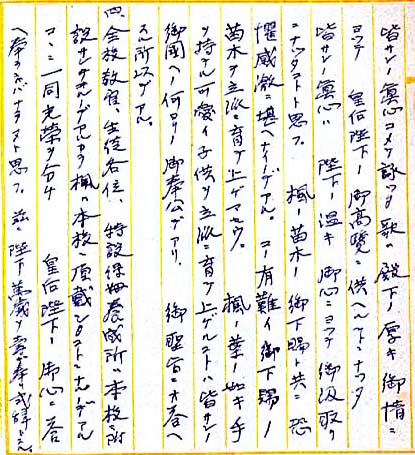 皆サンノ眞心コメテ詠ッタ歌ハ殿下ノ厚キ御情ニ
ヨッテ 皇后陛下ノ御高覧ニ供ヘルコトニナッタ
皆サンノ眞心ハ 陛下ノ温キ御心ニヨッテ御汲取リ
ニナッタコトト思フ。 楓ノ苗木ノ御下賜ト共ニ恐
懼感激ニ堪ヘナイノデアル。コノ有難イ御下賜ノ
苗木ヲ立派ニ育テ上ゲマセウ。 楓ノ葉ノ如キ手
ヲ持テル可愛イ子供ヲ立派ニ育テ上ゲルコトハ皆サンノ
御國ヘ何ヨリノ御奉公デアリ、 御聖旨ニオ答ヘ
スル所以デアル。
四、全校教官、生徒各位、特設保姆養成所ハ本校ニ附
設サレテヰルノデアルカラ楓ハ本校ニ頂戴シタコトニナルノデアル
ココニ一同光榮ヲ分チ 皇后陛下ノ御心ニ答
ヘ奉ラネバナラヌト思フ。茲ニ陛下ノ萬歳ヲ壽ギ奉リ式辞トス。